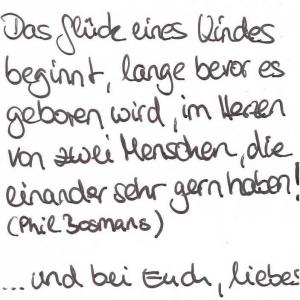 Das Glück eines Kindes
beginnt, lange bevor es
geboren wird, im Herzen
von zwei Menschen, die
einander sehr gern haben!
(Phil Bosmans)
...und bei Euch, liebes